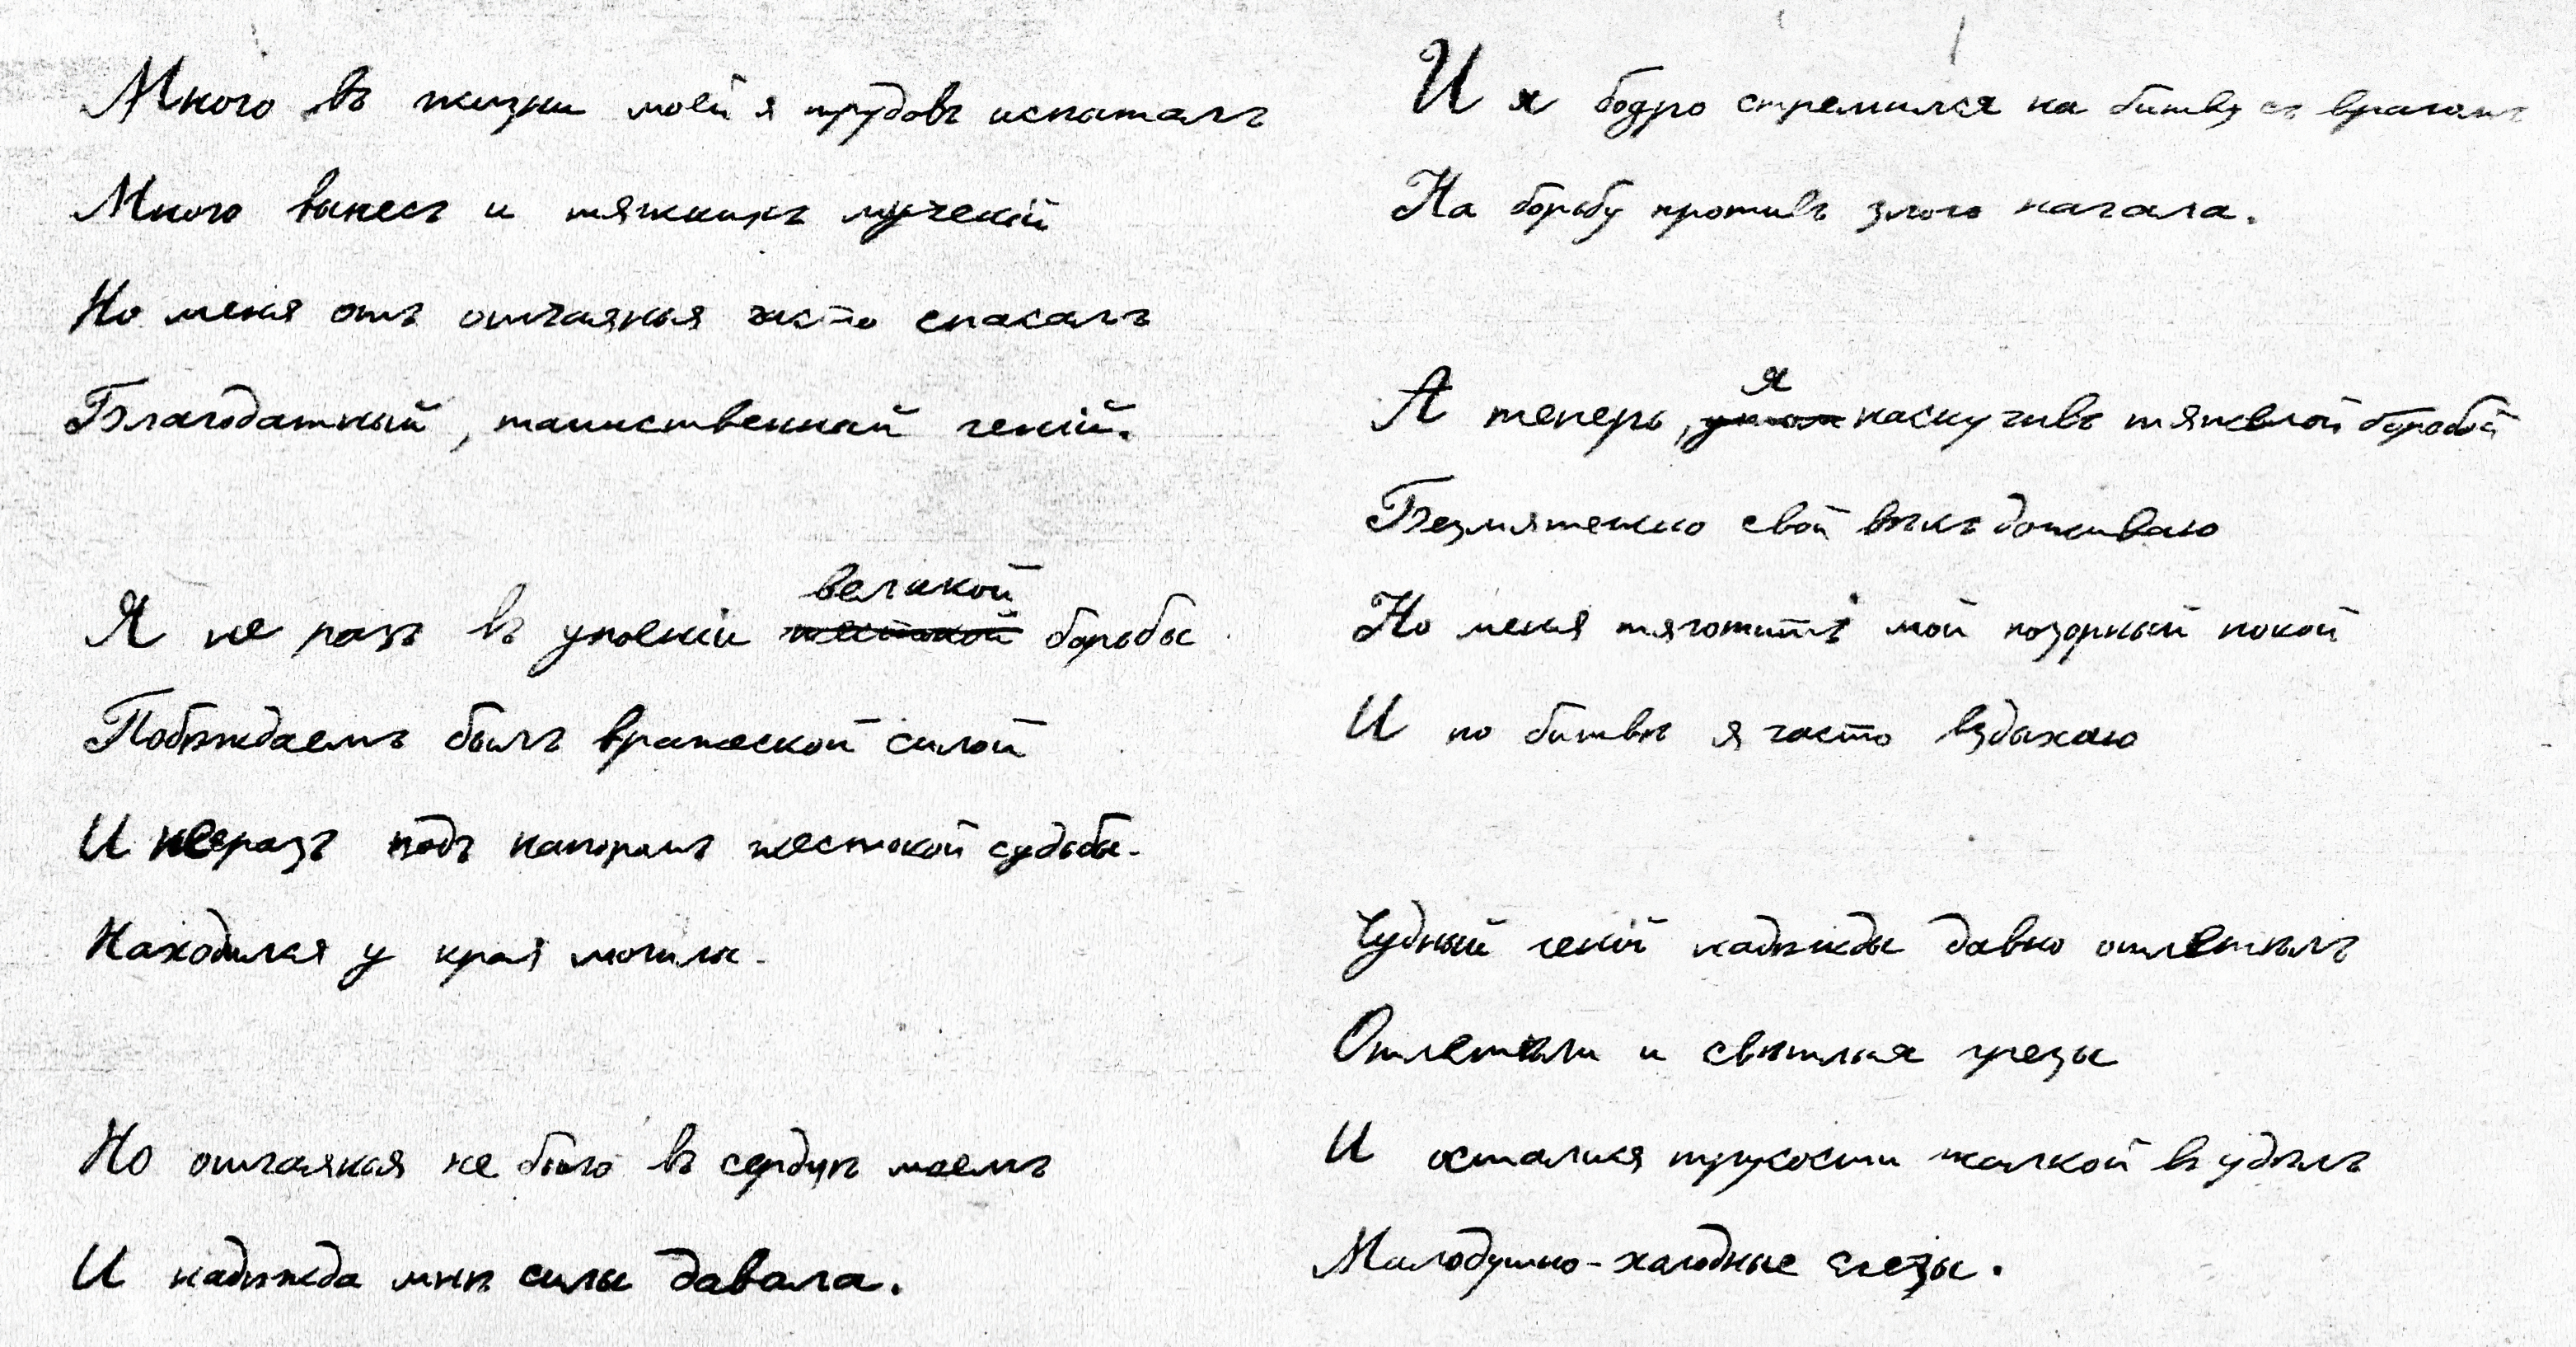 Много въ жизни моей я трудовъ испыталъ
Много вынесъ и тяжкихъ мученій
Но меня отъ отчаянья часто спасалъ
Благодатный, таинственный геній.
Я не разъ въ упоеніи великой борьбы
Побѣждаемъ былъ вражеской силой
И не разъ подъ напоромъ жестокой судьбы
Находился у края могилы.
Но отчаянья не было въ сердцѣ моемъ
И надѣжда мнѣ силы давала.
И я бодро стремился на битву съ врагомъ
На борьбу противъ злого начала.
А теперь, я наскучивъ тяжелой борьбой
Безмятежно свой вѣкъ доживаю
Но меня тяготитъ мой позорный покой
И по битвѣ я часто вздыхаю
Чудный геній надѣжды давно отлетѣлъ
Отлетѣли и свѣтлыя грезы
И осталися трусости жалкой въ удѣлъ
Малодушно-холодные слезы.